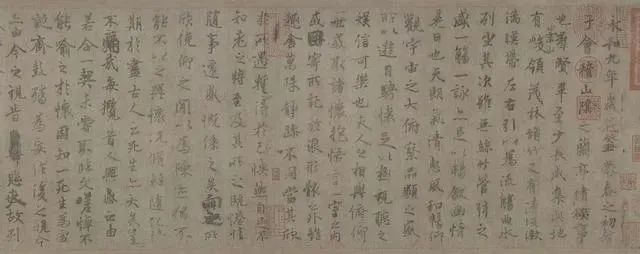 永和九年歲在癸丑暮春之初會
于會稽山陰之蘭亭脩禊事
也羣賢畢至少長咸集此地
有崇山峻領茂林脩竹又有清流激
湍暎帶左右引以為流觴曲水
列坐其次雖無絲竹管弦之
盛一觴一詠亦足以暢敘幽情
是日也天朗氣清惠風和暢仰
觀宇宙之大俯察品類之盛
所以遊目騁懷足以極視聽之
娛信可樂也夫人之相與俯仰
一世或取諸懷抱悟言一室之內
或因寄所託放浪形骸之外雖
趣舍萬殊靜躁不同當其欣
於所遇暫得於己快然自足不
知老之將至及其所之既惓情
隨事遷感慨係之矣向之所
欣俛仰之閒以為陳迹猶不
能不以之興懷況脩短隨化終
期於盡古人云死生亦大矣豈
不痛哉每攬昔人興感之由
若合一契未嘗不臨文嗟悼不
能喻之於懷固知一死生為虛
誕齊彭殤為妄作後之視今
亦由今之視昔悲夫故列